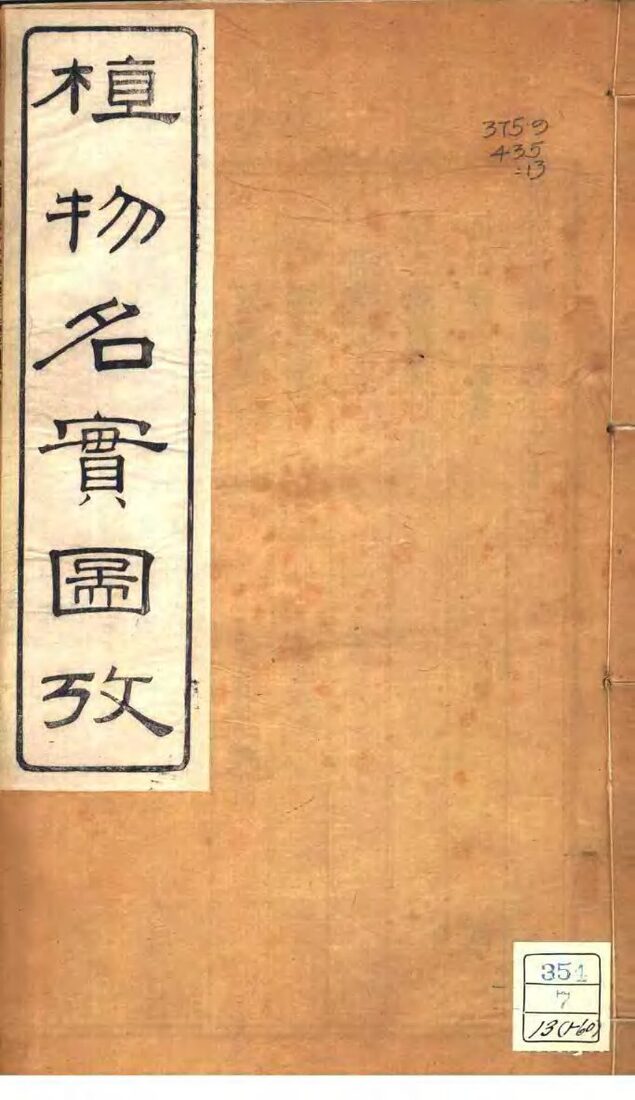 植物名實圖攷
375.9
435
:13
351
7
13(1-60)